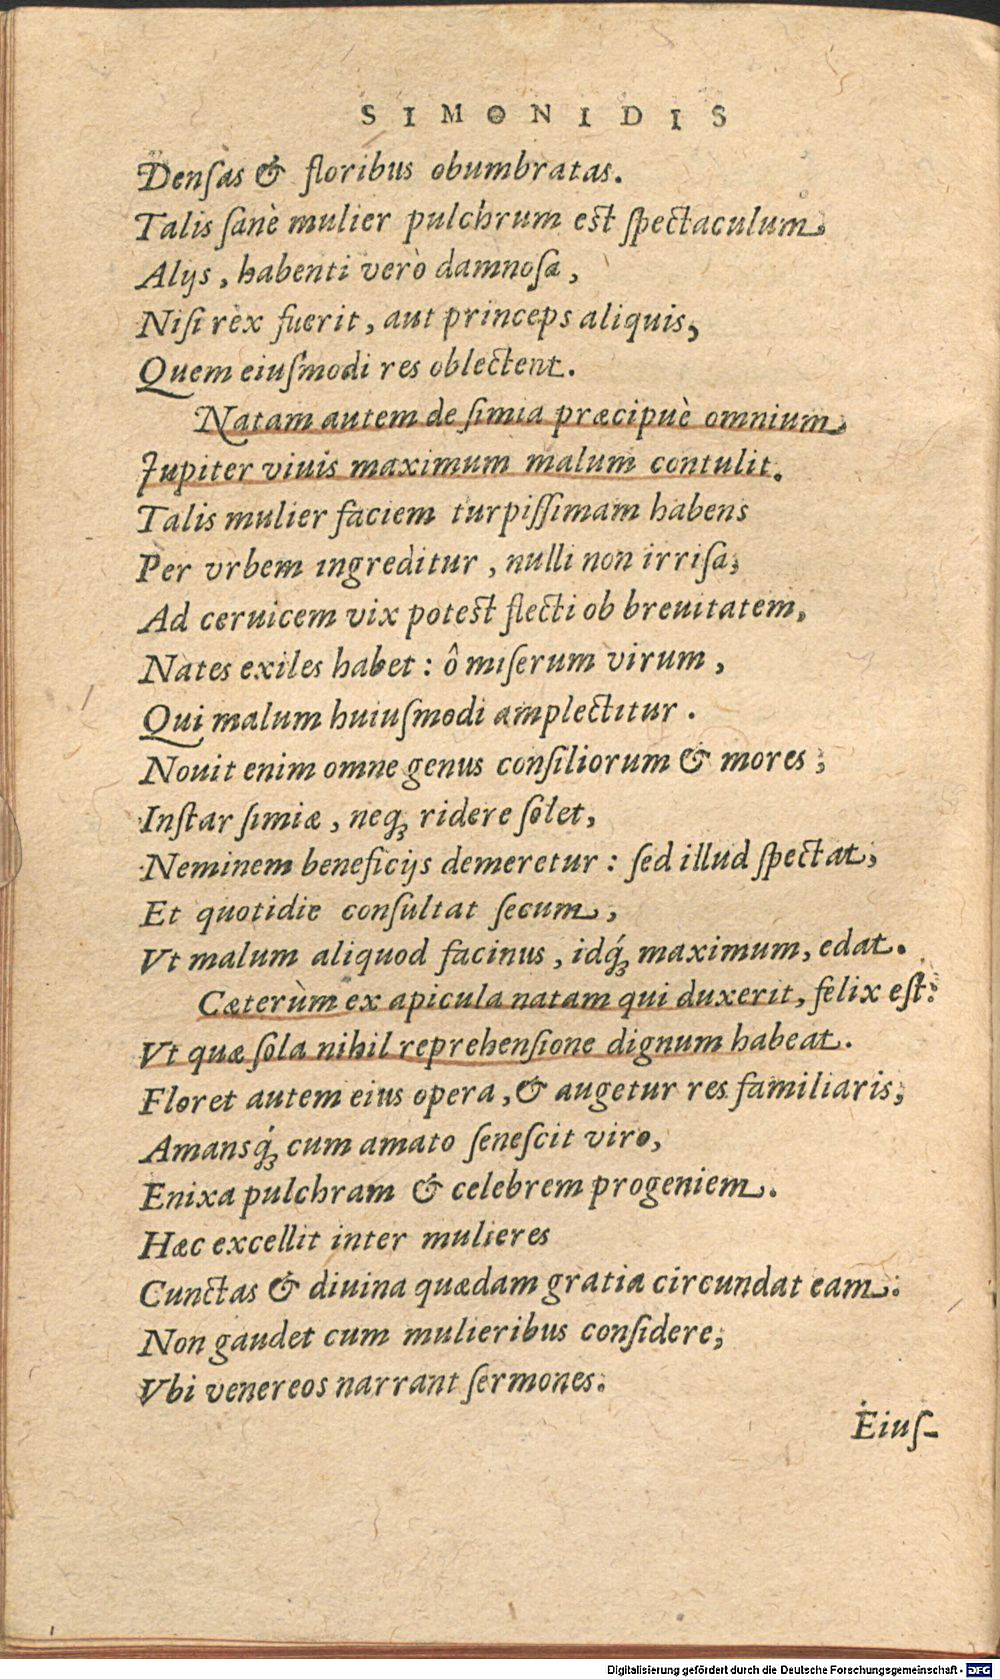 SIMONIDIS
Denſas & floribus obumbratas.
Talis ſanè mulier pulchrum eſt ſpectaculum,
Alijs, habenti verò damnoſa,
Niſi rex fuerit, aut princeps aliquis,
Quem eiuſmodi res oblectent.
Natam autem de ſimia præcipuè omnium,
Jupiter viuis maximum malum contulit.
Talis mulier faciem turpiſſimam habens
Per vrbem ingreditur, nulli non irriſa;
Ad ceruicem vix poteſt flecti ob breuitatem,
Nates exiles habet: ô miſerum virum,
Qui malum huiuſmodi amplectitur.
Nouit enim omne genus conſiliorum & mores;
Inſtar ſimiæ, neqꝫ ridere ſolet,
Neminem beneficijs demeretur: ſed illud ſpectat;
Et quotidie conſultat ſecum,
Vt malum aliquod facinus, idqꝫ́ maximum, edat.
Cæterùm ex apicula natam qui duxerit, felix eſt:
Vt quæ ſola nihil reprehenſione dignum habeat.
Floret autem eius opera, & augetur res familiaris;
Amansqꝫ́ cum amato ſeneſcit viro,
Enixa pulchram & celebrem progeniem.
Hæc excellit inter mulieres
Cunctas & diuina quædam gratia circundat eam:
Non gaudet cum mulieribus conſidere;
Vbi venereos narrant ſermones.
Eiuſ-
Digitalisierung gefördert durch die Deutsche Forschungsgemeinschaft - DFG